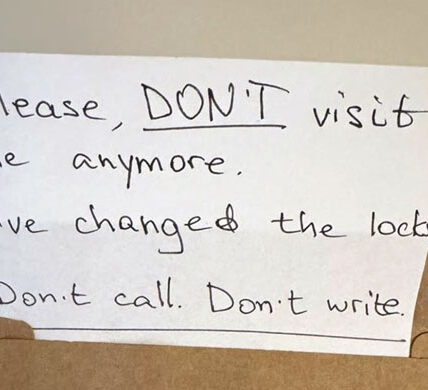 lease, DON'T visit
e anymore.
ve changed the lock
Don't call. Don't write.